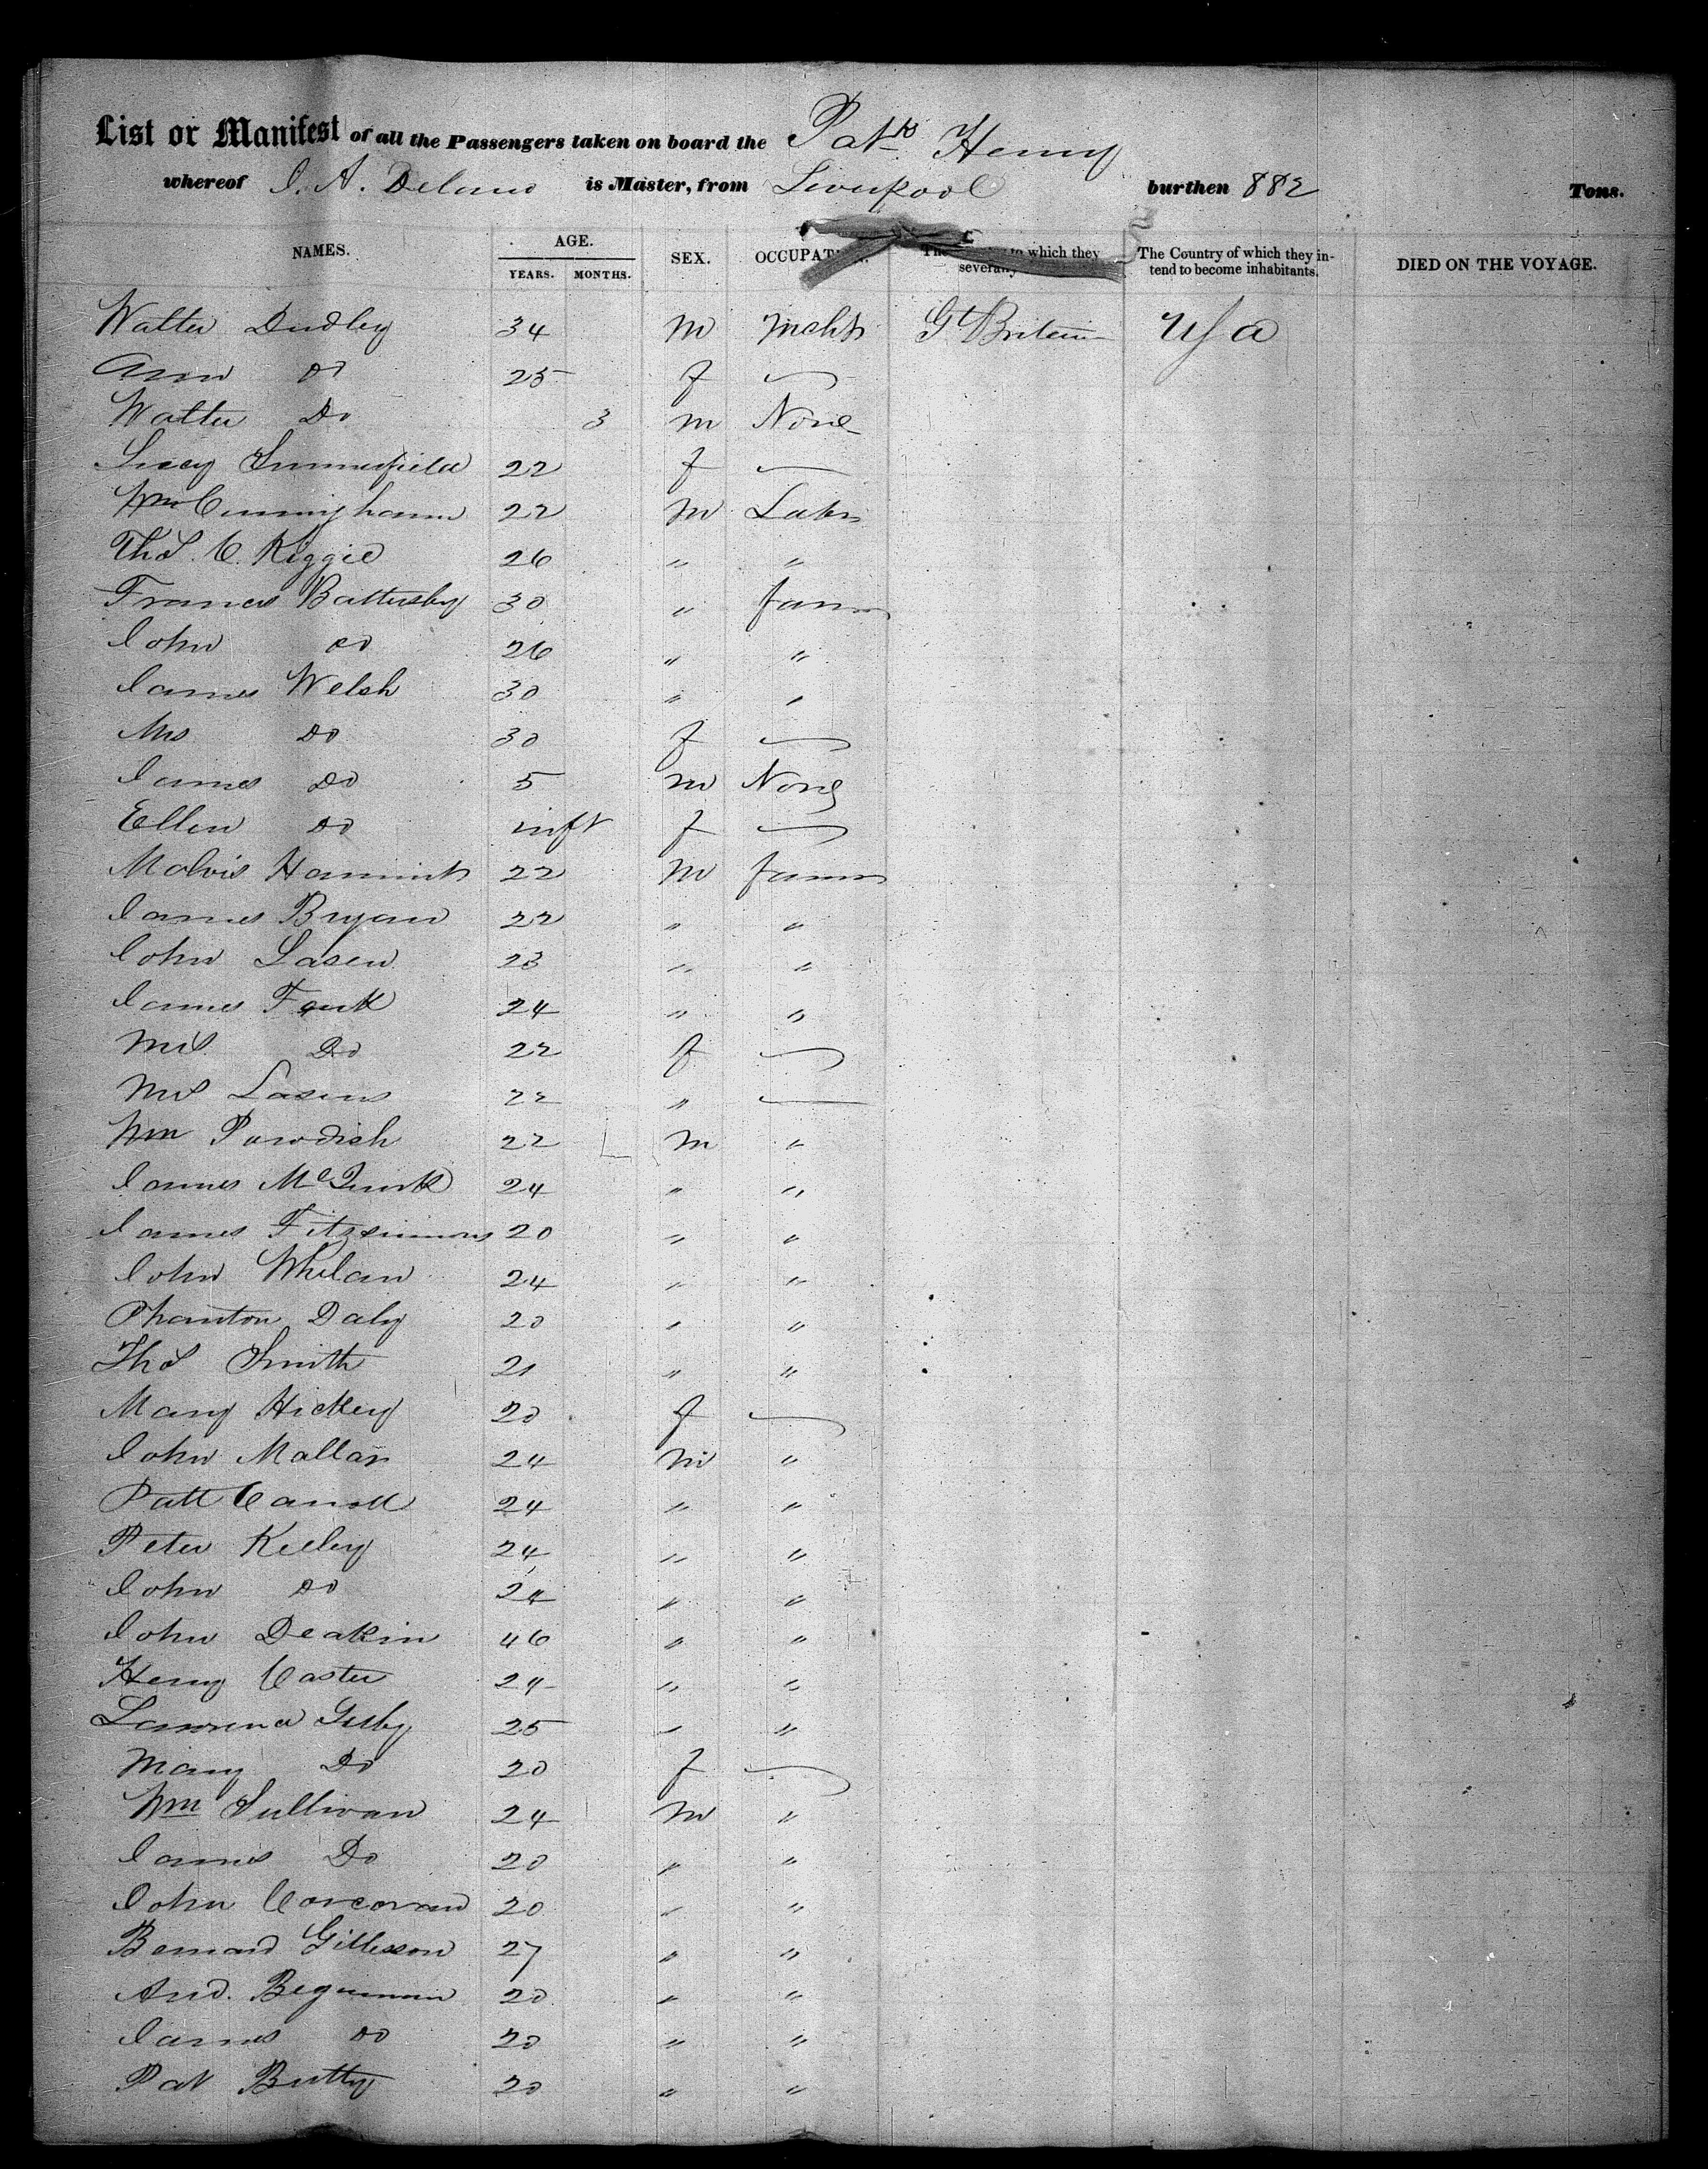 List or Manifest of all the Passengers taken on board the Patk Henry
whereof J. A. Delano is Master, from Liverpool burthen 882 Tons.
NAMES. AGE. YEARS. MONTHS. SEX. OCCUPAT The to which they several The Country of which they intend to become inhabitants. DIED ON THE VOYAGE.
Walter Dudley 34 M Mcht Gt Britain USA
Ann Do 25 f —
Walter Do 3 m None
Lucy Summerfield 22 f —
Wm Cunningham 22 M Labr
Thos. C. Kiggie 26 " "
Frances Battersby 30 " farmr
John Do 26 " "
James Welsh 30 " "
Mrs Do 30 f —
James Do 5 M None
Ellen Do inft f —
Hammink 22 M farmr
James Bryan 22 " "
John Lasen 23 " "
James Fauk 24 " "
Mrs Do 22 f —
Mrs Lasens 22 " —
Wm Parodish 22 M "
James McQuirk 24 " "
James Fitzsimmons 20 " "
John Whelan 24 " "
Phanton Daly 20 " "
Thos Smith 21 " "
Mary Hickey 20 f —
John Mallan 24 M "
Patt Carroll 24 " "
Peter Kelley 24 " "
John Do 24 " "
John Deakin 46 " "
Henry Caster 24 " "
Lawrence 25 " "
Mary Do 20 f —
Wm Sullivan 24 M "
James Do 20 " "
John Corcoran 20 " "
Bernard Gillesson 27 " "
And. 20 " "
James Do 20 " "
Pat Butty 20 " "